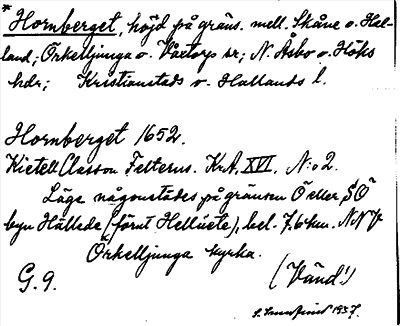 * Hornberget, höjd på gräns. mell. Skåne o. Hal-
land; Örkelljunga o. Våxtorp sr; N. Åsbo o. Höks
hdr; Kristianstads o. Hallands l.
Hornberget 1652.
Kietell Classon Felterus. Kr. A. XVI. N:o 2.
Läge någonstädes på gränsen Ö eller SÖ
byn Hällede (förut Hellüete), bel. 7,6 km. NNV
Örkelljunga kyrka.
G. 9. (Vänd!)
1937.